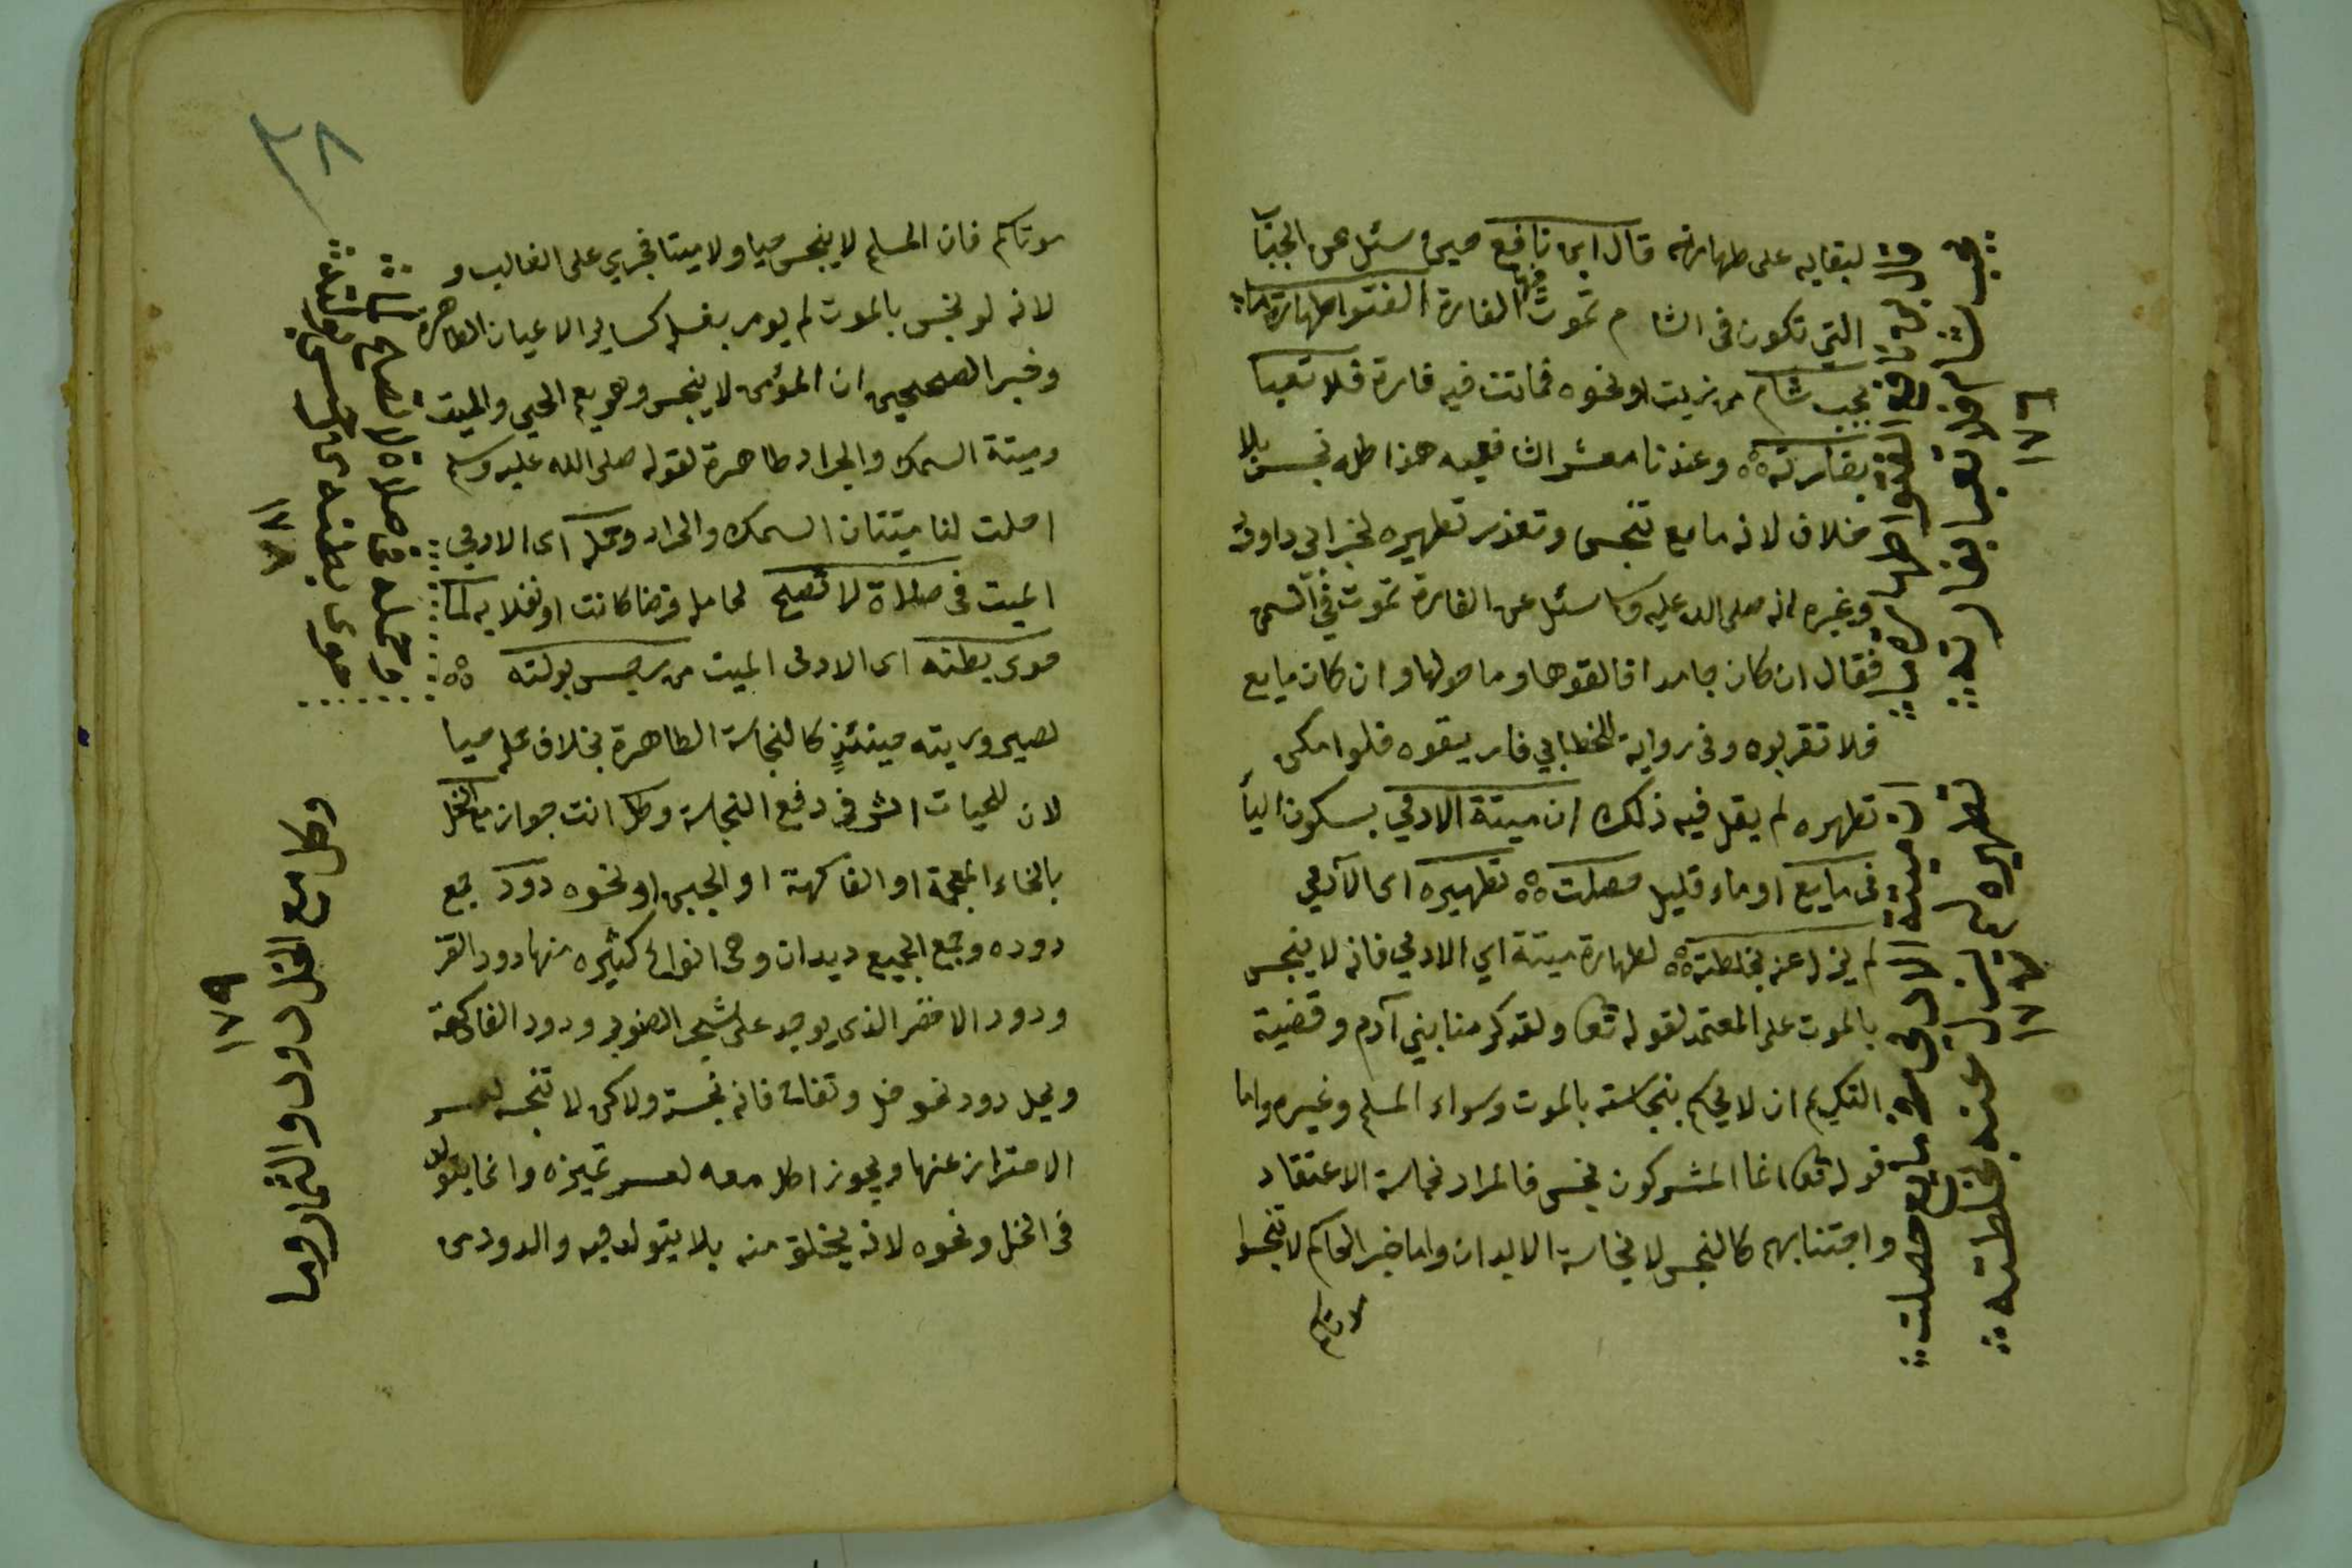 لبقايه على طهارته قال ابن نافع حين سئل عن الجبأ
التي تكون في الشام تموت فيها الفارة افتوا طهارة ما
بجب شام من زيت او نحوه فماتت فيه فارة فلا تعبا
بفارته وعندنا معشر الشافعيه هذا كله نجس بلا
خلاف لانه مايع تنجس وتعذر تطهيره لخبر ابي داود
وغيره انه صلى الله عليه وسلم سئل عن الفارة تموت في السمن
فقال ان كان جامدا فالقوها وما حولها وان كان مايع
فلا تقربوه وفي رواية للخطابي فاريقوه فلو امكن
تطهره لم يقل فيه ذلك ان ميتة الادمي بسكون اليأ
في مايع او ماء قليل حصلت تطهيره اى الآدمي
لم يزل عنه بخلطته لطهارة ميتة اي الادمي فانه لا ينجس
بالموت على المعتمد لقوله تعا ولقد كرمنا بني آدم وقضية
التكريم ان لا يحكم بنجاسته بالموت وسواء المسلم وغيره واما
قوله تعا انما المشركون نجس فالمراد نجاسة الاعتقاد
واجتنابهم كالنجس لا نجاسة الابدان واما خبر الحاكم لا تنجسوا
قال بن نافع افتوا طهارة ما
بجب شام فلا تعبا بفارته
١٧٦
ان ميتة الادمي في مايع حصلت
تطهيره لم يزل عنه بخلطته
١٧٧
٣٨
موتاكم فان المسلم لا ينجس حيا ولا ميتا فجري على الغالب و
لانه لو نجس بالموت لم يومر بغسله كساير الاعيان الطاهرة
وخبر الصحيحين ان المؤمن لا ينجس وهو يعم الحي والميت
وميتة السمك والجراد طاهرة لقوله صلى الله عليه وسلم
احلت لنا ميتتان السمك والجراد وحمله اى الادمي
الميت في صلاة لا تصح لحامله فرضا كانت او نفلا به لما
حوى بطنه اى الادمى الميت من رجس بولته
لصيرورته حينئذٍ كالنجاسة الطاهرة بخلاف حمله حيا
لان للحيات اثر في دفع النجاسة وكل انت جواز مع الخل
بالخاء المعجمة او الفاكهة او الجبن او نحوه دود جمع
دوده وجمع الجمع ديدان وهى انواع كثيره منها دود القز
ودود الاخضر الذي يوجد على شجر الصنوبر ودود الفاكهة
ويحل دود نحو خل وتفاح فانه نجسة ولاكن لا تنجسه لعسر
الاحتراز عنها ويجوز اكل معه لعسر تميزه وانما يتولد
في الخل ونحوه لانه يختلق منه بلا يتولد فيه والدود من
وحمله في صلاة لا تصح لما
حوى بطنه من رجس
١٧٨
وكل مع الخل دود والثمار وما
١٧٩